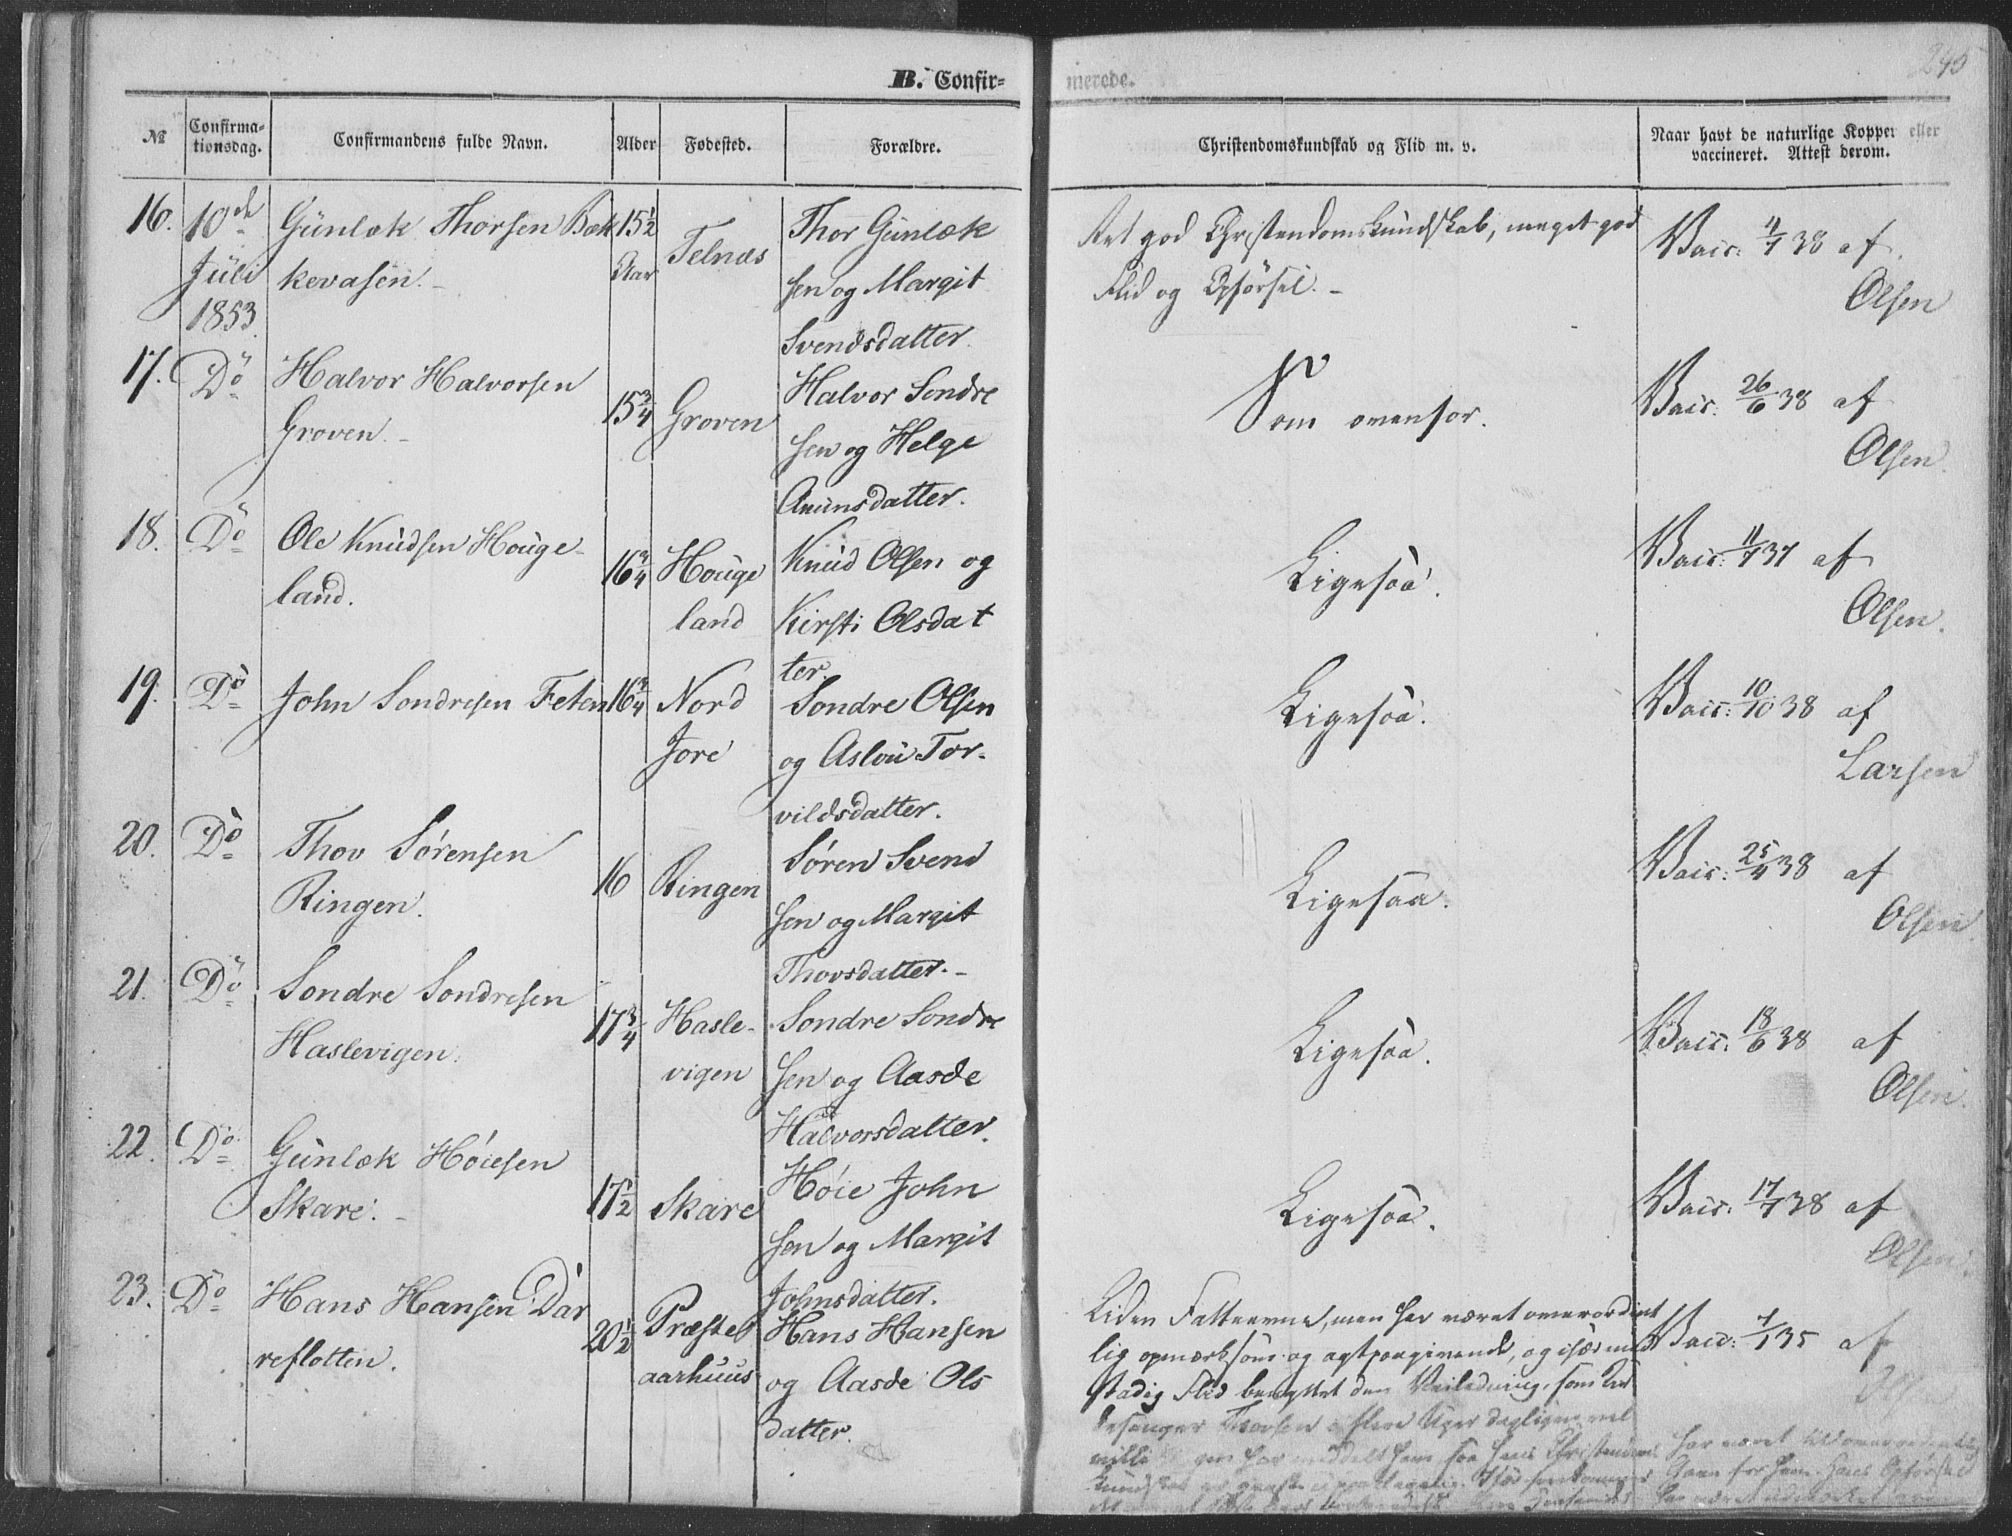 B. Confir-
merede.
245
№
Confirma-
tionsdag.
Confirmandens fulde Navn.
Alder
Fødested.
Forældre.
Christendomskundskab og Flid m. v.
Naar havt de naturlige Kopper eller
vaccineret. Attest derom.
16. 10de Gunlæk Thorsen Bæk 15 1/2 Telnæs Thor Gunlæk
Juli kevasen. Aar sen og Margit
1853. Svendsdatter.
Ret god Christendomskundskab, meget god
Flid og Opførsel.
Vacc: 4/7 38 af
Olsen
17. Do Halvor Halvorsen 15 3/4 Groven Halvor Sondre
Groven. sen og Helge
Anunsdatter.
Som ovenfor.
Vacc: 26/6 38 af
Olsen.
18. Do Ole Knudsen Houge- 16 3/4 Houge Knud Olsen og
land. land Kirsti Olsdat
ter.
Ligesaa.
Vacc: 11/7 37 af
Olsen.
19. Do John Sondresen Feten 16 3/4 Nord Sondre Olsen
Jore og Aslou Tor-
vildsdatter.
Ligesaa.
Vacc: 10/10 38 af
Larsen
20. Do Thov Sørensen 16 Ringen Søren Svend
Ringen. sen og Margit
Thovsdatter.-
Ligesaa.
Vacc: 25/4 38 af
Olsen.
21. Do Sondre Sondresen 17 3/4 Hasle- Sondre Sondre
Haslevigen. vigen sen og Aasde
Halvorsdatter.
Ligesaa.
Vacc: 18/6 38 af
Olsen.
22. Do Gunlæk Høiesen 17 1/2 Skare Høie John
Skare. sen og Margit
Johnsdatter.
Ligesaa.
Vacc: 17/7 38 af
Olsen.
23. Do Hans Hansen Dår 20 1/2 Præstes Hans Hansen
reflotten. aarhuus og Aasde Ols
datter.
Liden Fatteevne, men har været overordent
lig opmærksom og agtpaagivende, og især med
stadig Flid benyttet den Veiledning, som
Vacc: 7/1 35 af